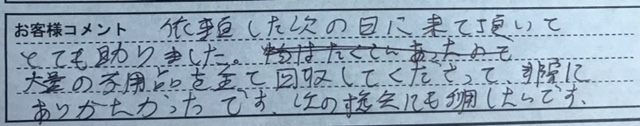 お客様コメント 依頼した次の日に来て頂いて
とても助りました。
大量の不用品を全て回収してくださって、非常に
ありがたかったです。次の機会にも利用したいです。